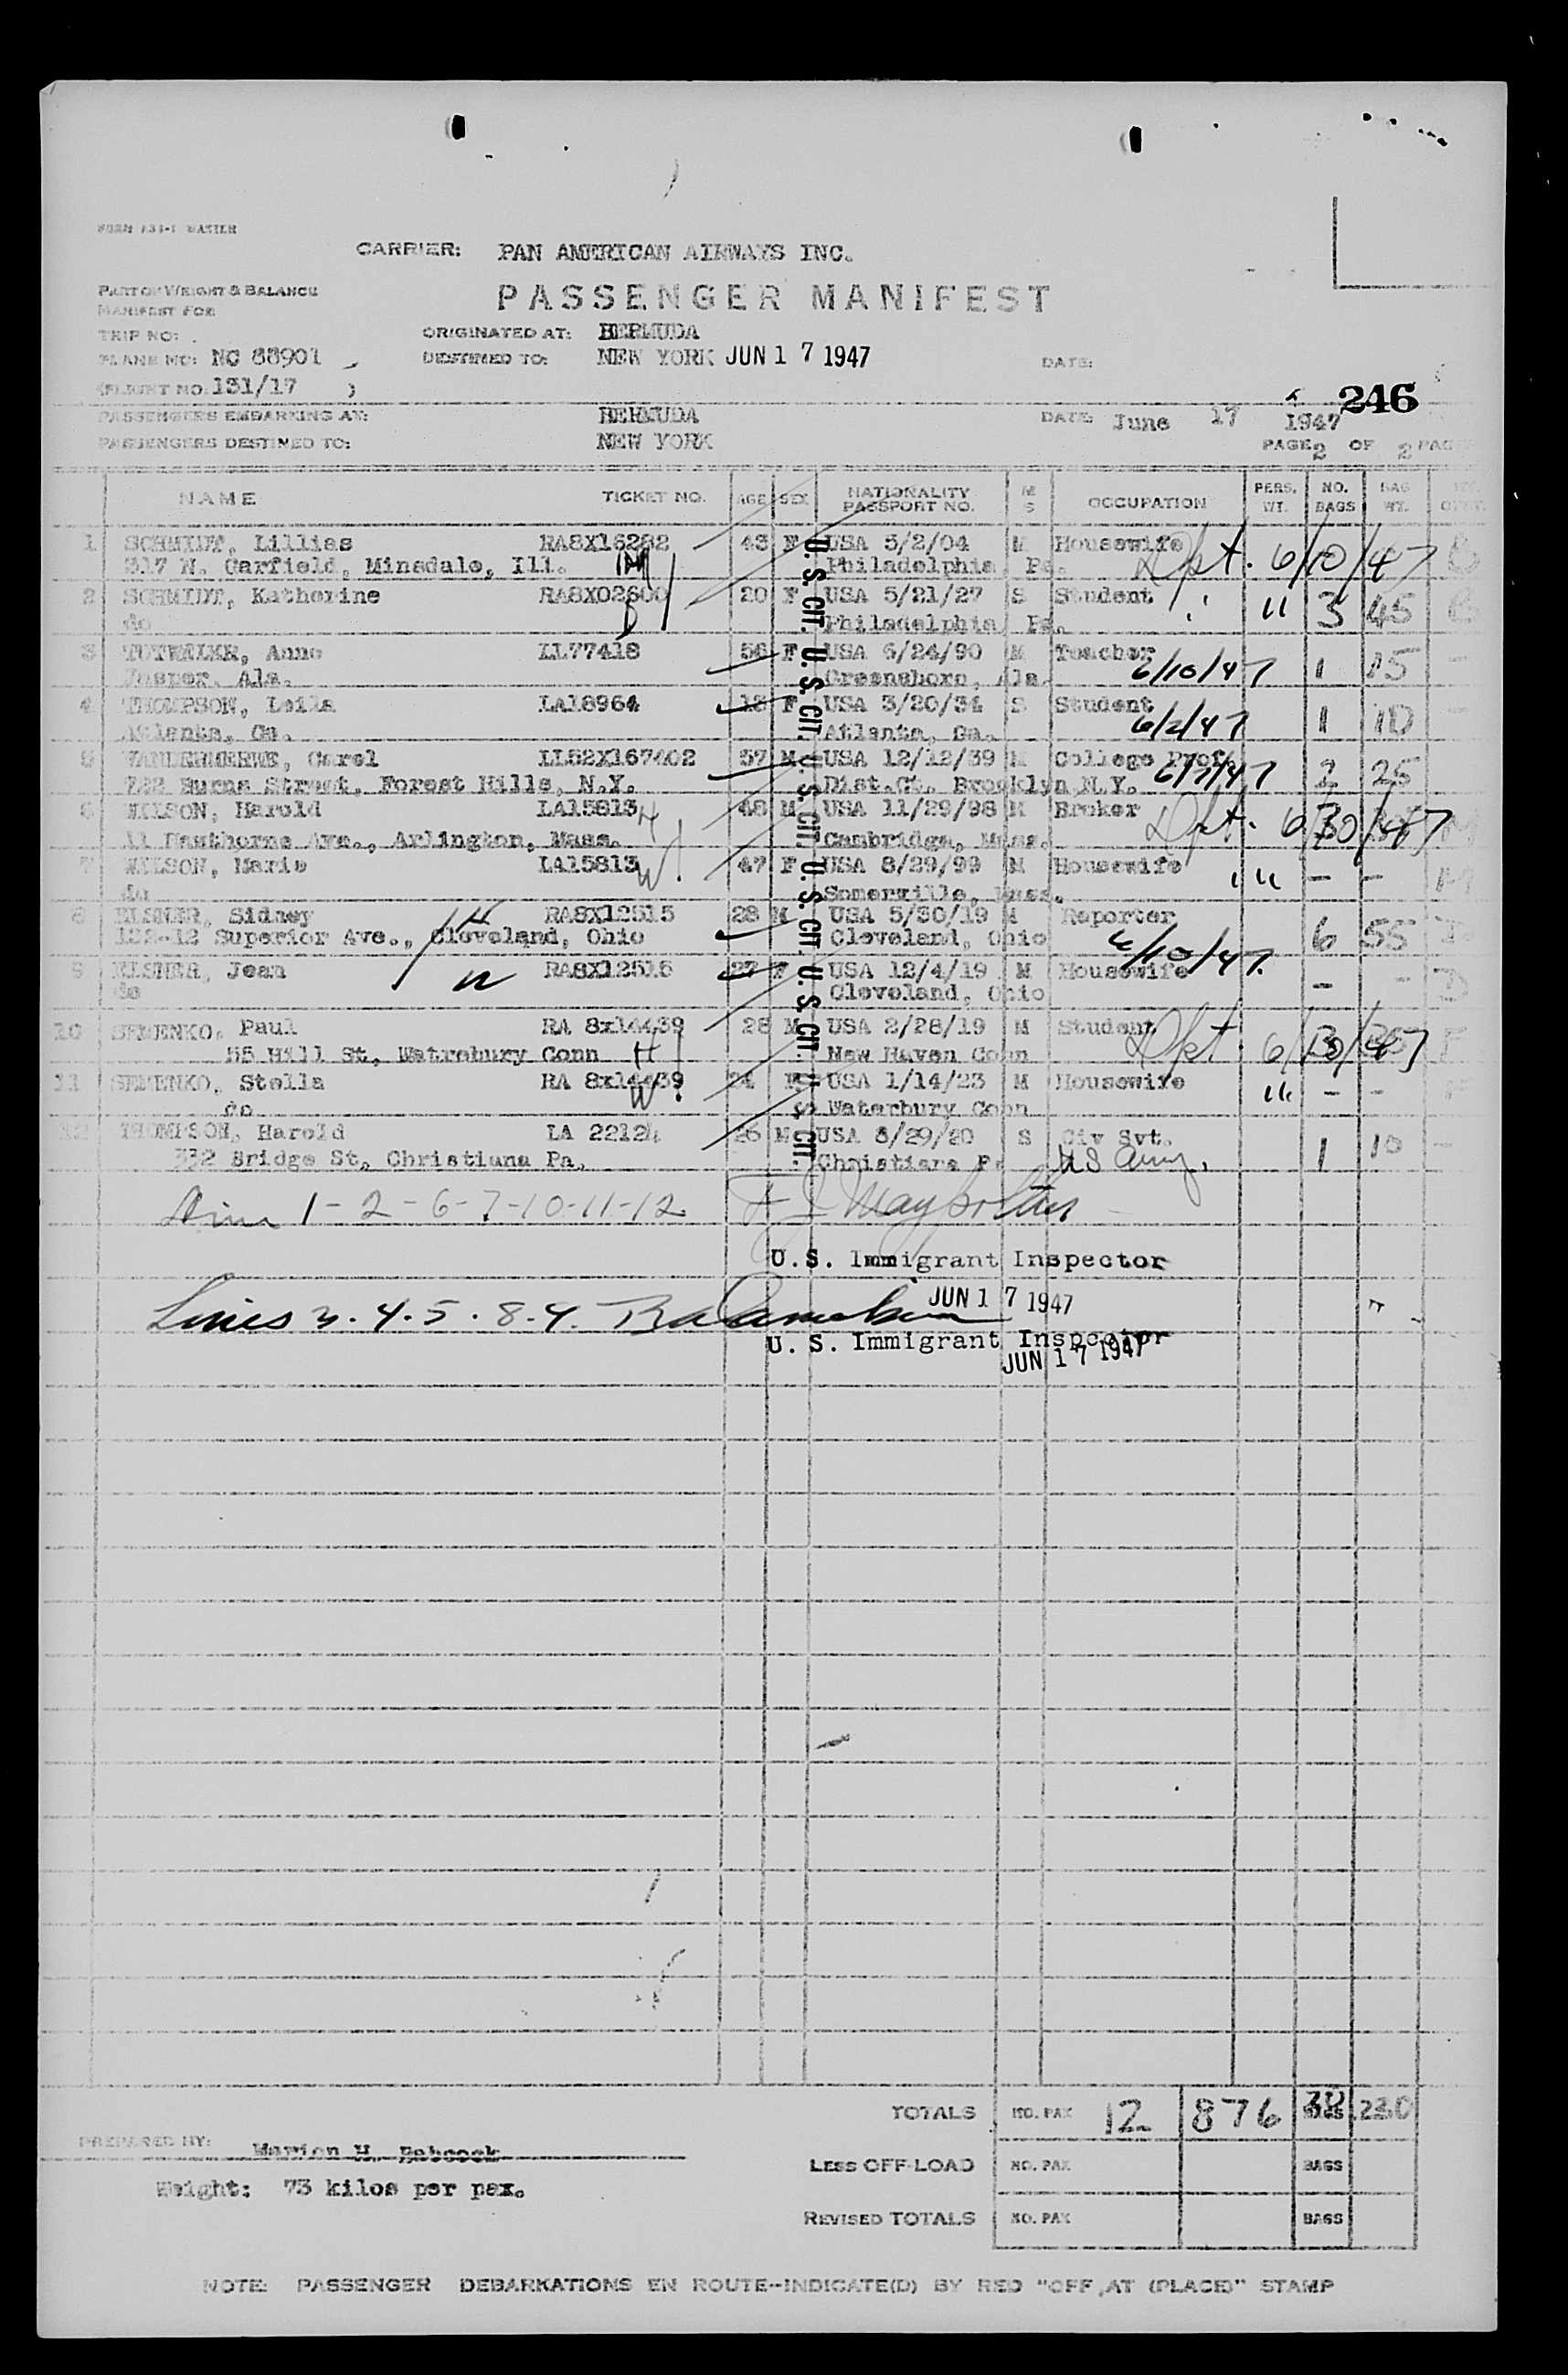 FORM 131-1 MASTER
CARRIER: PAN AMERICAN AIRWAYS INC.
PART OF WEIGHT & BALANCE
MANIFEST FOR
PASSENGER MANIFEST
TRIP NO:
ORIGINATED AT: BERMUDA
PLANE NO: NC 88901
DESTINED TO: NEW YORK JUN 17 1947
DATE:
(FLIGHT NO. 131/17 )
246
PASSENGERS EMBARKING AT: BERMUDA
DATE: June 17 1947
PASSENGERS DESTINED TO: NEW YORK
PAGE 2 OF 2 PAGES
NAME TICKET NO. AGE SEX NATIONALITY PASSPORT NO. M S OCCUPATION PERS. WT. NO. BAGS BAG WT.
1 SCHMIDT, Lillias RA8X16282 43 F USA 5/2/04 M Housewife
317 N. Garfield, Minsdale, Ill. Philadelphia Pa. Dpt. 6/10/47
2 SCHMIDT, Katherine RA8X02600 20 F USA 5/21/27 S Student " " 3 45
do Philadelphia Pa.
3 TUTWEILER, Anne LL77418 56 F USA 6/24/90 M Teacher
Jasper, Ala. Greensboro, Ala. 6/10/47 1 15
4 THOMPSON, Leila LA18964 13 F USA 3/20/34 S Student
Atlanta, Ga. Atlanta, Ga. 6/2/47 1 10
5 Carol LL52X167402 57 M USA 12/12/39 M College Prof.
Burns Street, Forest Hills, N.Y. Dist.Ct. Brooklyn N.Y. 6/7/47 2 25
6 WILSON, Harold LA15813 H 48 M USA 11/29/98 M Broker
11 Hawthorne Ave., Arlington, Mass. Cambridge, Mass. Dpt. 6/10/47
7 WILSON, Marie LA15813 W 47 F USA 8/29/99 M Housewife " " - -
do Somerville, Mass.
8 ELSNER, Sidney H RA8X12515 28 M USA 5/30/19 M Reporter
122-12 Superior Ave., Cleveland, Ohio Cleveland, Ohio 6/10/47 6 55
9 ELSNER, Jean W RA8X12516 27 F USA 12/4/19 M Housewife
do Cleveland, Ohio - -
10 SEMENKO, Paul RA 8x14439 28 M USA 2/28/19 M Student
55 Hill St, Watrebury Conn H New Haven Conn Dpt. 6/10/47
11 SEMENKO, Stella RA 8x14439 24 USA 1/14/23 M Housewife
do W Waterbury Conn " " - -
12 THOMPSON, Harold LA 22124 26 M USA 8/29/20 S Civ Svt.
332 Bridge St, Christiana Pa. Christiara Pa US Army. 1 10
U. S. CIT. U. S. CIT. U. S. CIT. U. S. CIT. U. S. CIT. U. S. CIT.
1-2-6-7-10-11-12
U.S. Immigrant Inspector
JUN 17 1947
Lines 3.4.5.8.9.
U. S. Immigrant Inspector
JUN 17 1947
TOTALS NO. PAX 12 876 BAGS 230
PREPARED BY: Marion H. Babcock
LESS OFF-LOAD NO. PAX BAGS
Weight: 73 kilos per pax.
REVISED TOTALS NO. PAX BAGS
NOTE: PASSENGER DEBARKATIONS EN ROUTE--INDICATE(D) BY RED "OFF AT (PLACE)" STAMP